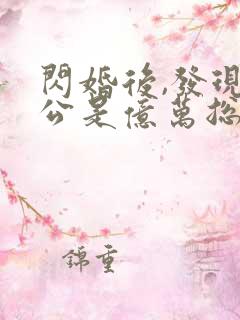 閃婚後,發現
公是億萬總
錦重